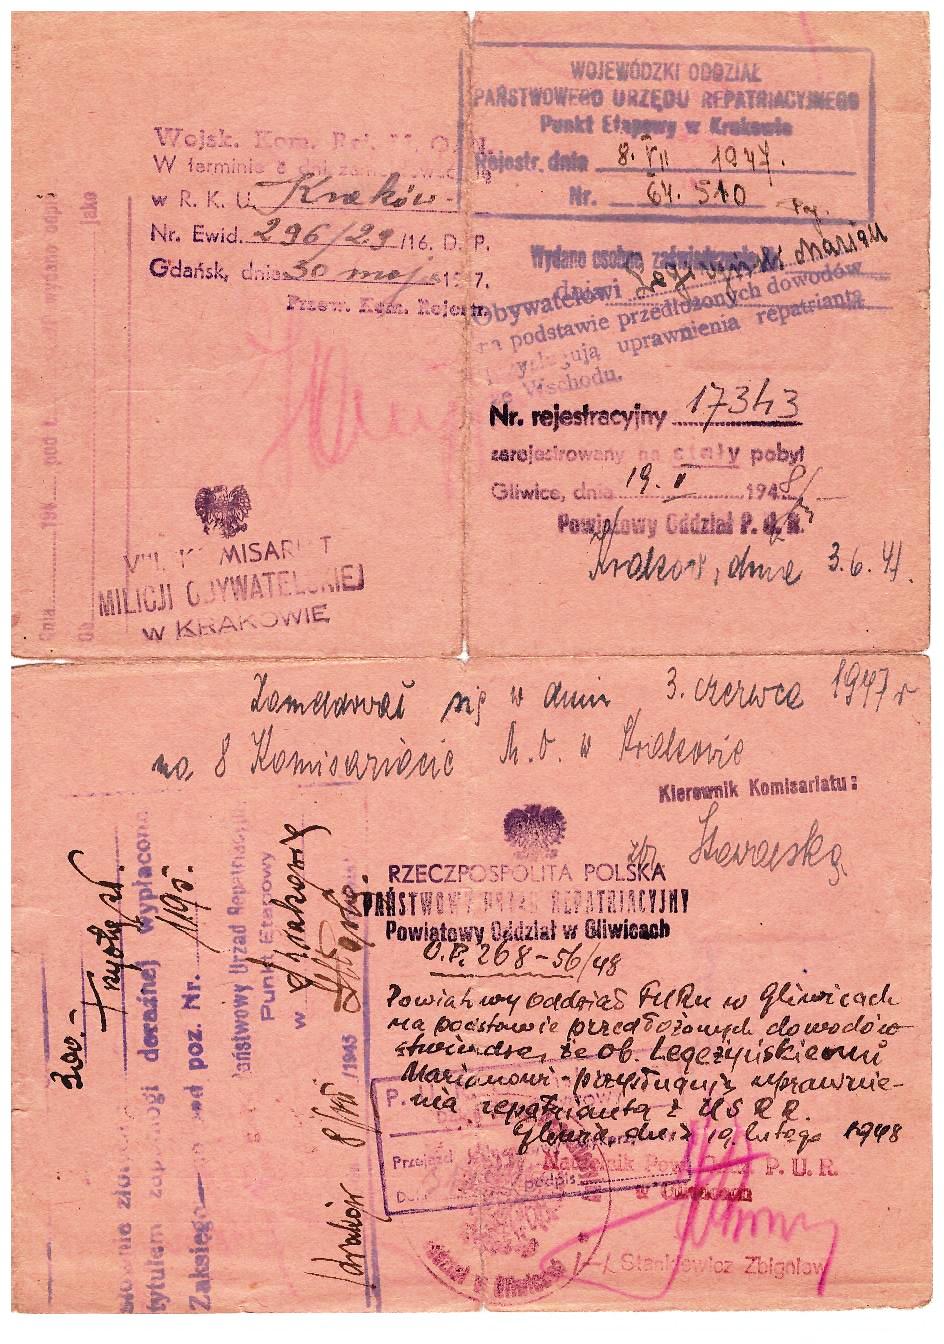 WOJEWÓDZKI ODDZIAŁ
PAŃSTWOWEGO URZĘDU REPATRIACYJNEGO
Punkt Etapowy w Krakowie
Rejestr. dnia 8. VII 1947.
Nr. 64. 510
Wydano osobne zaświadczenie
dnia
Obywatelowi Legeżyński Marian
na podstawie przedłożonych dowodów
przysługują uprawnienia repatrianta
ze Wschodu.
Nr. rejestracyjny 17343
zarejestrowany na stały pobyt
Gliwice, dnia 19. II 1948
Powiatowy Oddział P. U. R.
Kraków, dnia 3.6.47.
Wojsk. Kom. Rej.
W terminie
w R. K. U. Kraków
Nr. Ewid. 296/29/16. D. P.
Gdańsk, dnia 30 maja 1947.
Przew. Kom. Rejestr.
wydano odpis
jako
pod
Dnia 194
Ob.
VIII. KOMISARIAT
MILICJI OBYWATELSKIEJ
w KRAKOWIE
Zameldował się w dniu 3. czerwca 1947 r
na 8 Komisariacie M. O. w Krakowie
Kierownik Komisariatu:
RZECZPOSPOLITA POLSKA
PAŃSTWOWY URZĄD REPATRIACYJNY
Powiatowy Oddział w Gliwicach
O.P. 268-56/48
Powiatowy oddział PURu w Gliwicach
na podstawie przedłożonych dowodów
stwierdza, że ob. Legeżyńskiemu
Marianowi przysługują uprawnie-
nia repatrianta z USRR.
Gliwice dnia 19 lutego 1948
Naczelnik Pow. Oddz. P. U. R.
w Gliwicach
(-) Stankiewicz Zbigniew
Przejazd
podpis
w Gliwicach
300.-
słownie zło
tytułem zapomogi doraźnej wypłacona
Zaksięgo pod poz. Nr. 1195.
Państwowy Urząd Repatriacyjny
Punkt Etapowy
w Krakowie
Kraków 8/VII /1945